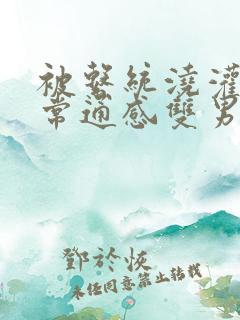 被繫統澆灌
常通感雙男
鄧於恢
未經同意禁止轉載